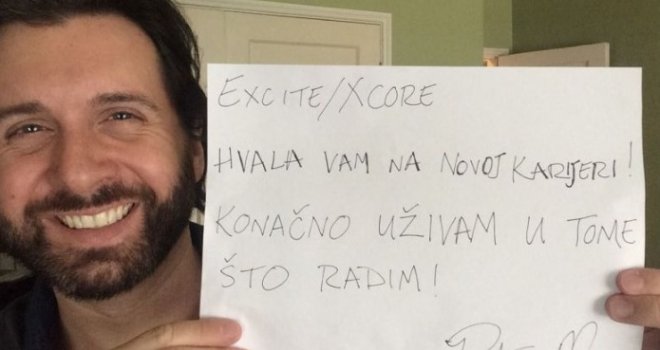 EXCITE/XCORE
HVALA VAM NA NOVOJ KARIJERI!
KONAČNO UŽIVAM U TOME
ŠTO RADIM!